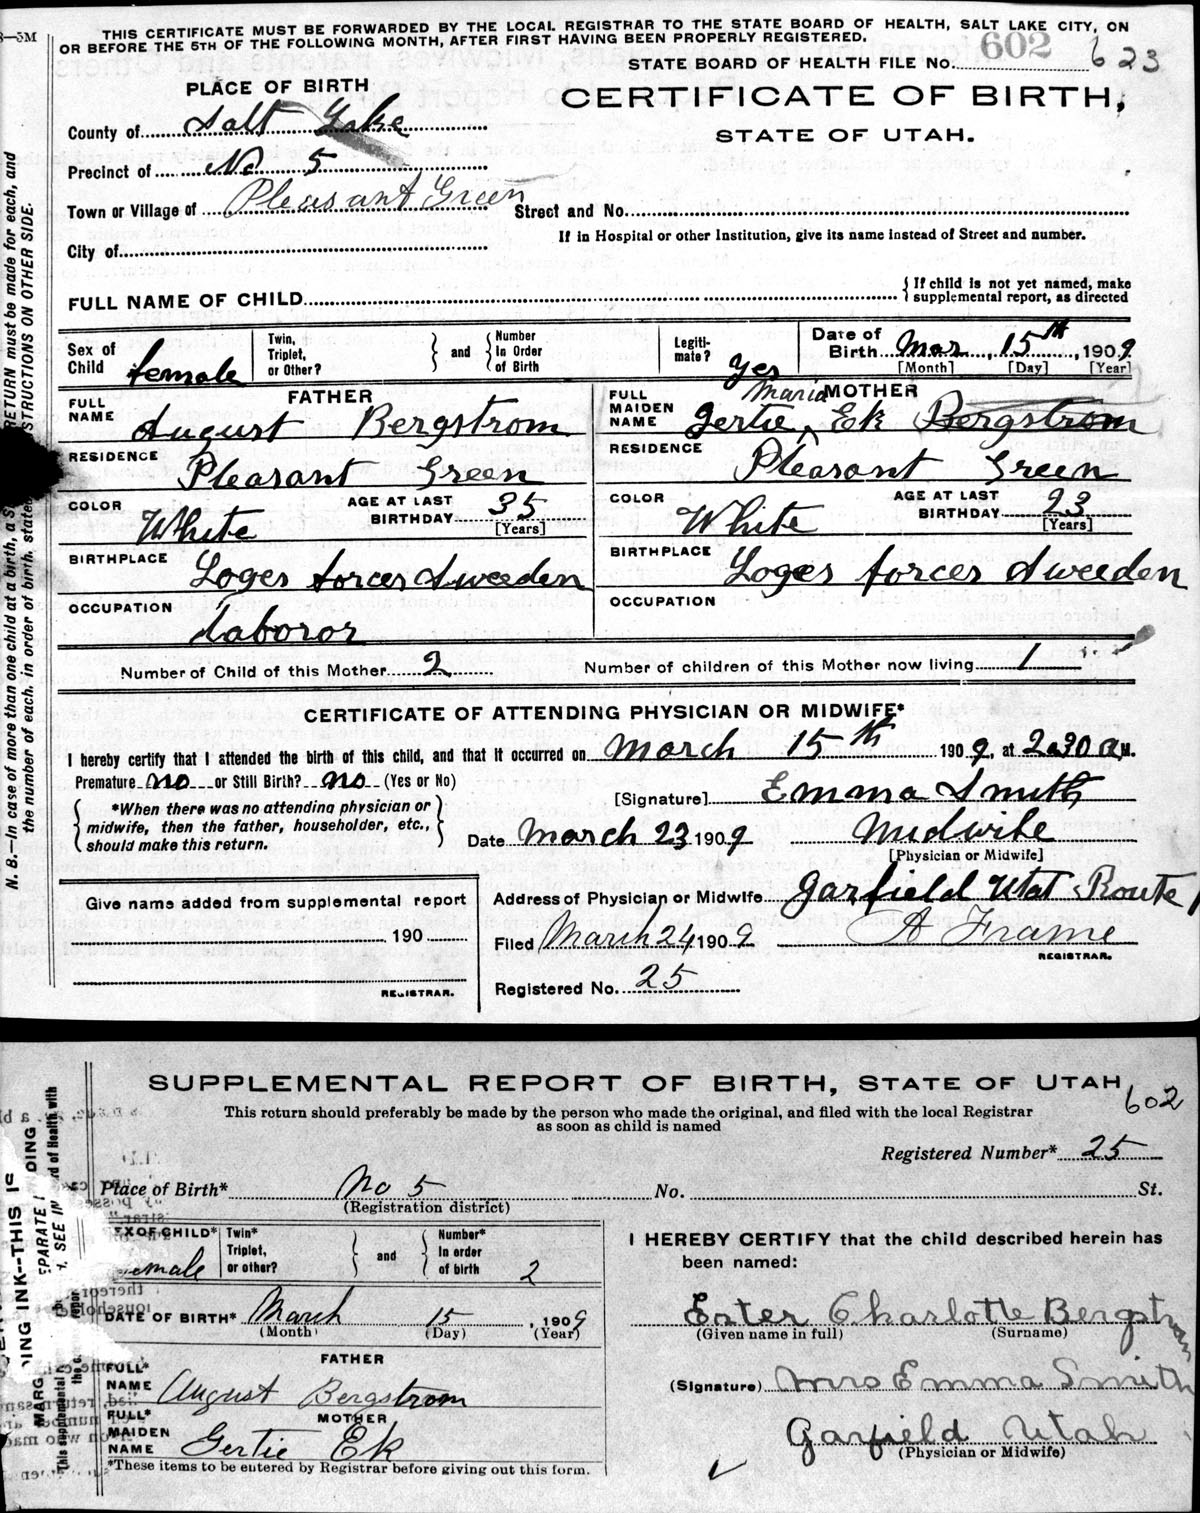 8—5M
THIS CERTIFICATE MUST BE FORWARDED BY THE LOCAL REGISTRAR TO THE STATE BOARD OF HEALTH, SALT LAKE CITY, ON
OR BEFORE THE 5TH OF THE FOLLOWING MONTH, AFTER FIRST HAVING BEEN PROPERLY REGISTERED.
STATE BOARD OF HEALTH FILE No. 602 623
PLACE OF BIRTH
CERTIFICATE OF BIRTH,
STATE OF UTAH.
County of Salt Lake
Precinct of No 5
Town or Village of Pleasant Green Street and No.
If in Hospital or other Institution, give its name instead of Street and number.
City of
FULL NAME OF CHILD { If child is not yet named, make
supplemental report, as directed
Sex of Child female Twin, Triplet, or Other? } and { Number In Order of Birth Legiti-mate? Yes Date of Birth Mar, 15th, 1909
[Month] [Day] [Year]
FATHER
FULL NAME August Bergstrom
RESIDENCE Pleasant Green
COLOR White AGE AT LAST BIRTHDAY 35
[Years]
BIRTHPLACE Loges forces Sweeden
OCCUPATION Laboror
MOTHER
FULL MAIDEN NAME Gertie, Maria Ek Bergstrom
RESIDENCE Pleasant Green
COLOR White AGE AT LAST BIRTHDAY 23
[Years]
BIRTHPLACE Loges forces Sweeden
OCCUPATION
Number of Child of this Mother 2 Number of children of this Mother now living 1
CERTIFICATE OF ATTENDING PHYSICIAN OR MIDWIFE*
I hereby certify that I attended the birth of this child, and that it occurred on March 15th 1909, at 2.30 A M.
Premature no or Still Birth? no (Yes or No)
{ *When there was no attending physician or
midwife, then the father, householder, etc.,
should make this return. }
[Signature] Emma Smith
Date March 23 1909 Midwife
[Physician or Midwife]
Give name added from supplemental report
190
REGISTRAR.
Address of Physician or Midwife Garfield Utat Route 1
Filed March 24 1909 A Frame
REGISTRAR.
Registered No. 25
N. B.—In case of more than one child at a birth, a S RETURN must be made for each, and
the number of each, in order of birth, state STRUCTIONS ON OTHER SIDE.
SUPPLEMENTAL REPORT OF BIRTH, STATE OF UTAH
602
This return should preferably be made by the person who made the original, and filed with the local Registrar
as soon as child is named
Registered Number* 25
Place of Birth* No 5 No. St.
(Registration district)
EX OF CHILD* emale Twin* Triplet, or other? } and { Number* In order of birth 2
DATE OF BIRTH* March 15, 1909
(Month) (Day) (Year)
FATHER
FULL* NAME August Bergstrom
MOTHER
FULL* MAIDEN NAME Gertie Ek
*These items to be entered by Registrar before giving out this form.
I HEREBY CERTIFY that the child described herein has
been named:
Ester Charlotte Bergstrom
(Given name in full) (Surname)
(Signature) Mrs Emma Smith
Garfield Utah
(Physician or Midwife)